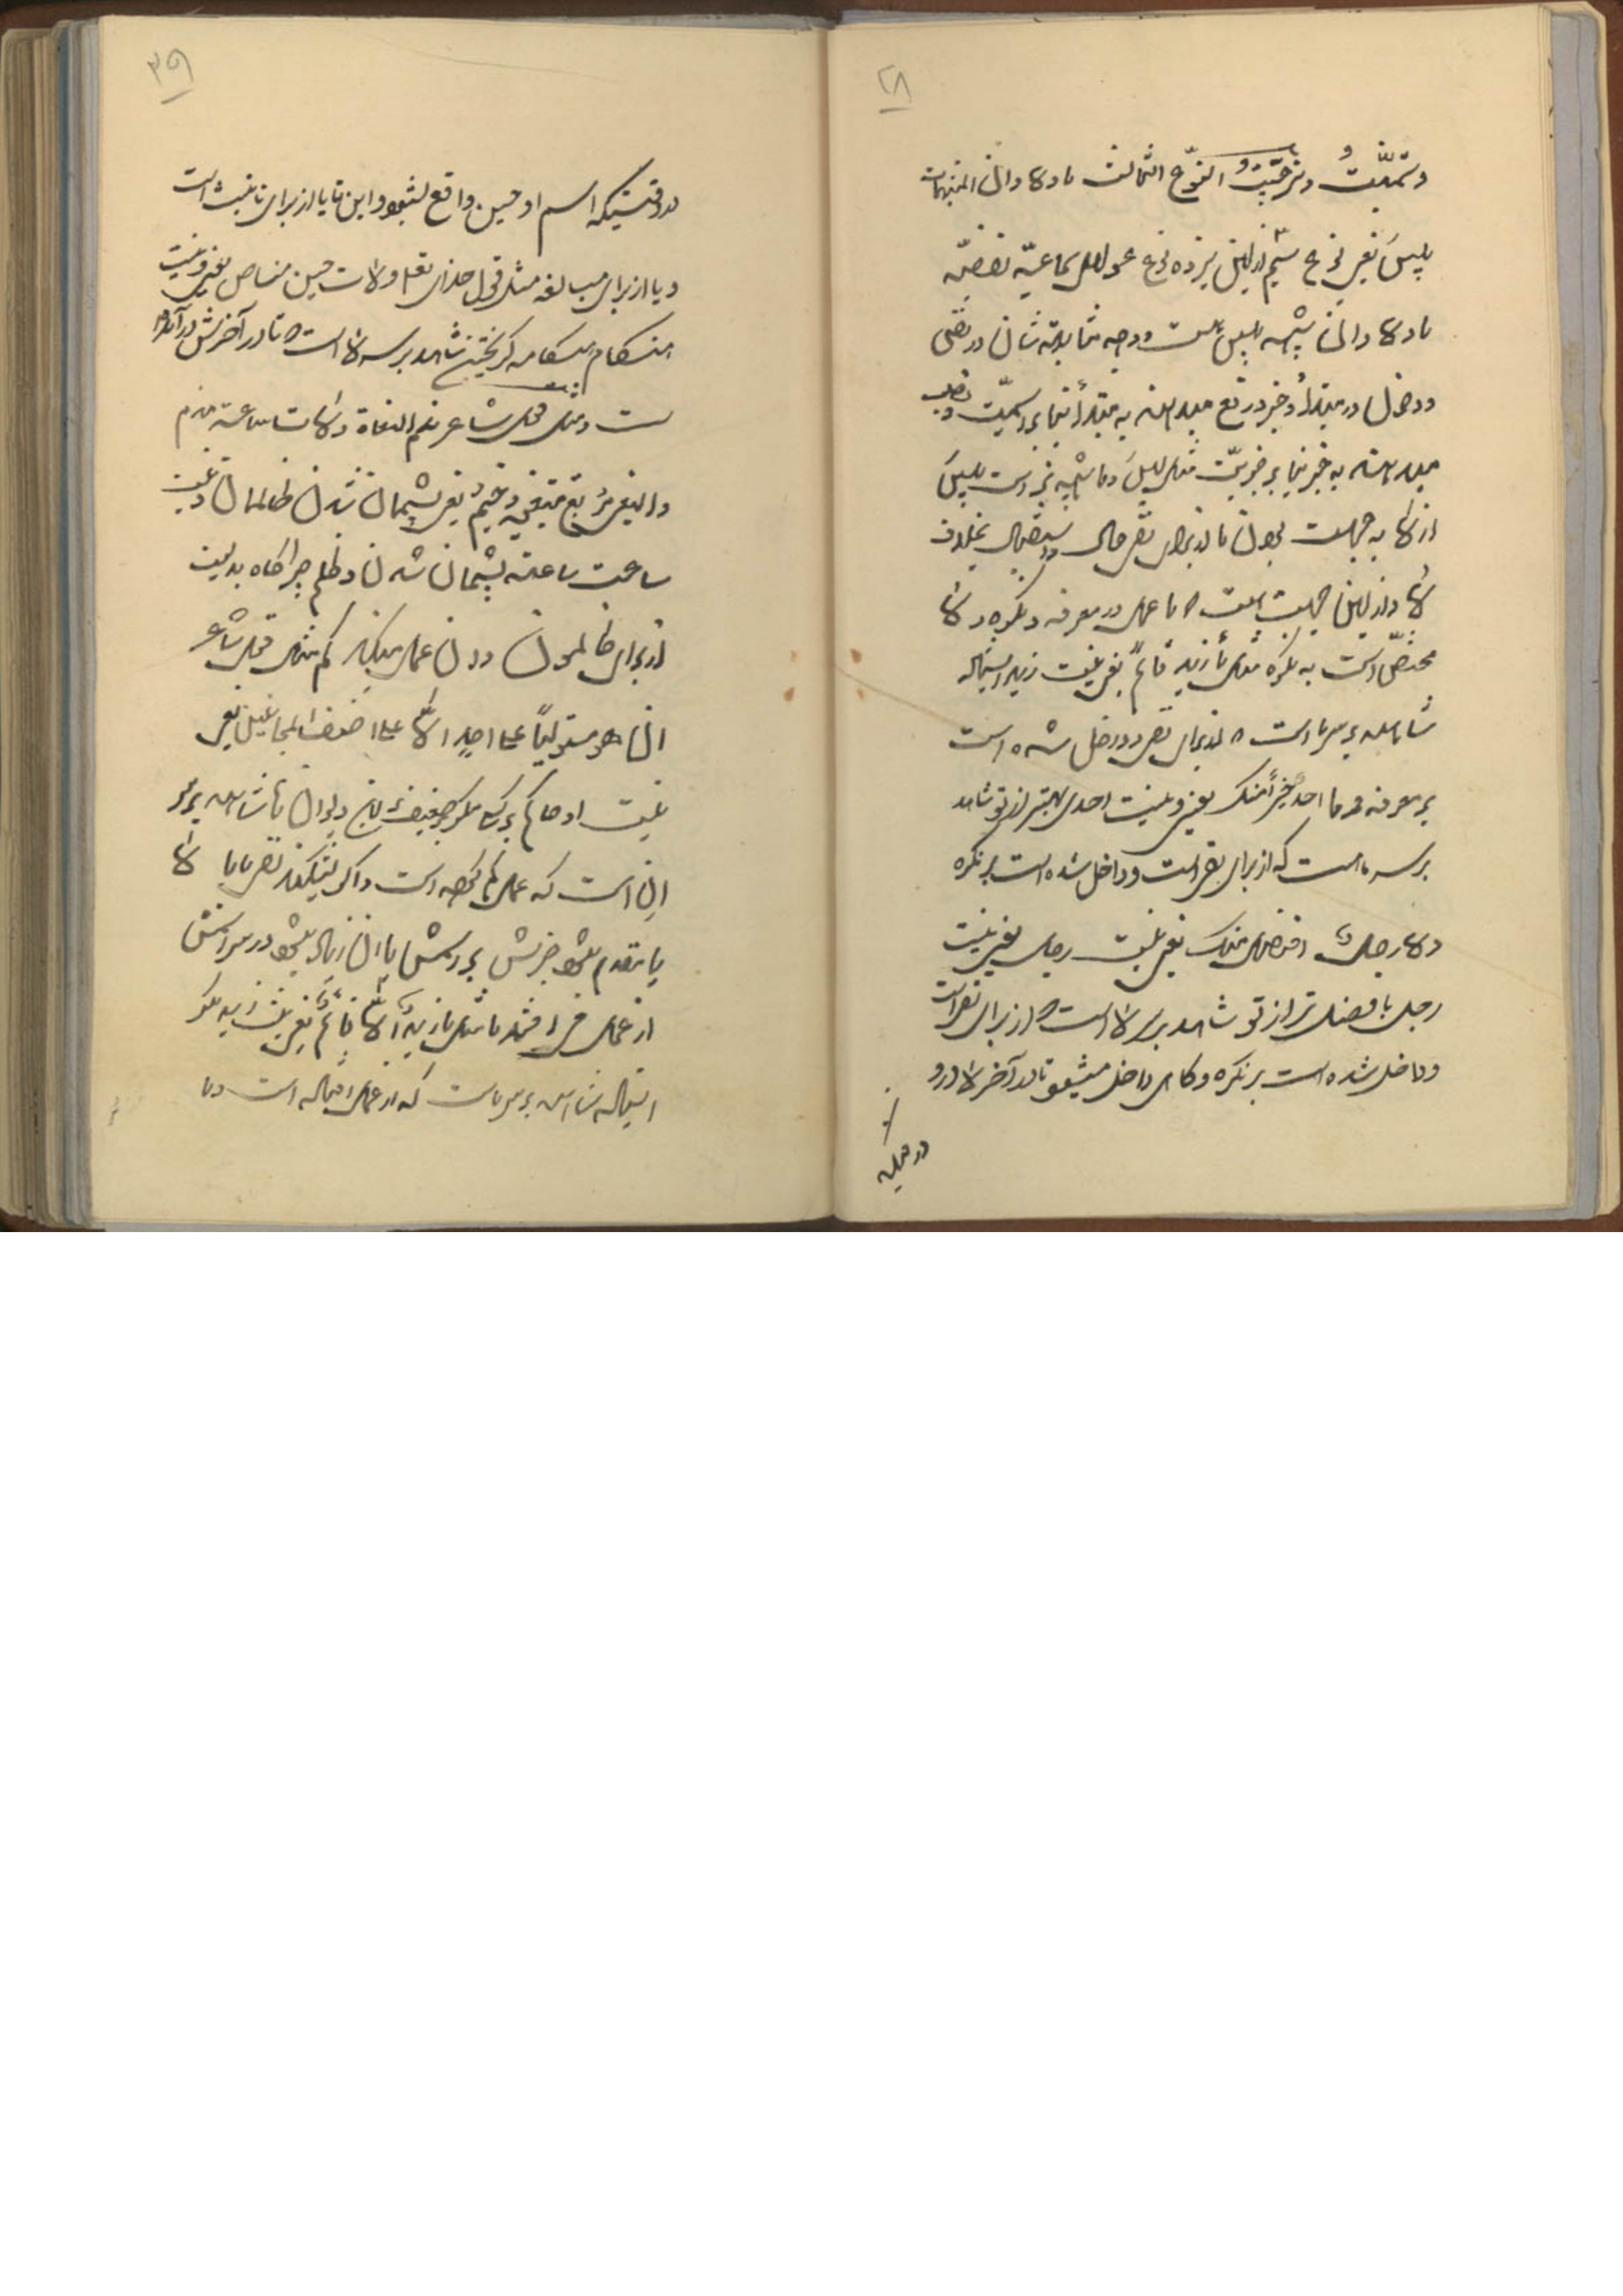 ۲۸
وتمنّیتُ وترجّیتُ النوع الثالث ما ولا وان المشبهات
بلیسَ یعنی نوع سیّم از این سیزده نوع عوامل سماعیّه
ما ولا وان شبیه بلیس است ووجه مشابهت شان در نفی
ودخول در مبتدأ وخبر رفع میدهند به مبتدأ بنابر اسمیّت ونصب
میدهند به خبر بنابر خبریّت مثل لیسَ وما شبیه تر است بلیسَ
از لا به جهت بودن ما از برای نفی حال بخلاف
لا واز این جهت است ما عمل در معرفه ونکره ولا
مختصّ است به نکره مثل ما زید قائماً یعنی نیست زید ایستاده
شاهد بر سر ما است از برای نفی ودخل شده است
بر معرفه وما احد خیراً منک یعنی ونیست احدی بهتر از تو شاهد
بر سر ما است که از برای نفی است وداخل شده است بر نکره
ولا رجل افضل منک یعنی نیست رجل یعنی نیست
رجل با فضل تر از تو شاهد بر سر لا است از برای نفی است
وداخل شده است بر نکره وکاهی داخل میشود تا در آخر لا
۳۹
در وقتیکه اسم او حین واقع بشود واین تا یا از برای تأنیث است
ویا از برای مبالغه مثل قول خدای تعالی ولات حین مناص یعنی ونیست
هنگام هنگامه گریختن شاهد بر سر لا است تا در آخرش در آمده
است ومثل قول شاعر ندم البغاة ولات ساعة مندم
والبغی مرتع مبتغیه وخیم یعنی پشیمان شدن ظالمان ونیست
ساعت ساعت پشیمان شدن وظلم چراگاه بدیست
از برای ظالمون وان عمل میکند کم مثل قول شاعر
ان هو مستولیاً علی احدٍ الّا علی اضعف المجانین یعنی
نیست او حاکم بر کسی مگر بر ضعیف ترین دیوانها شاهد بر سر
ان است که عمل کرده است واگر بشکند نفی ما یا لا
یا مقدم بشود خبرش بر اسمش یا ان زیاد بشود در سر اسمش
از عمل می افتد ما مثل ما زیدٌ الّا قائمٌ یعنی نیست زید مگر
ایستاده شاهد بر سر ما است که از عمل افتاده است وما